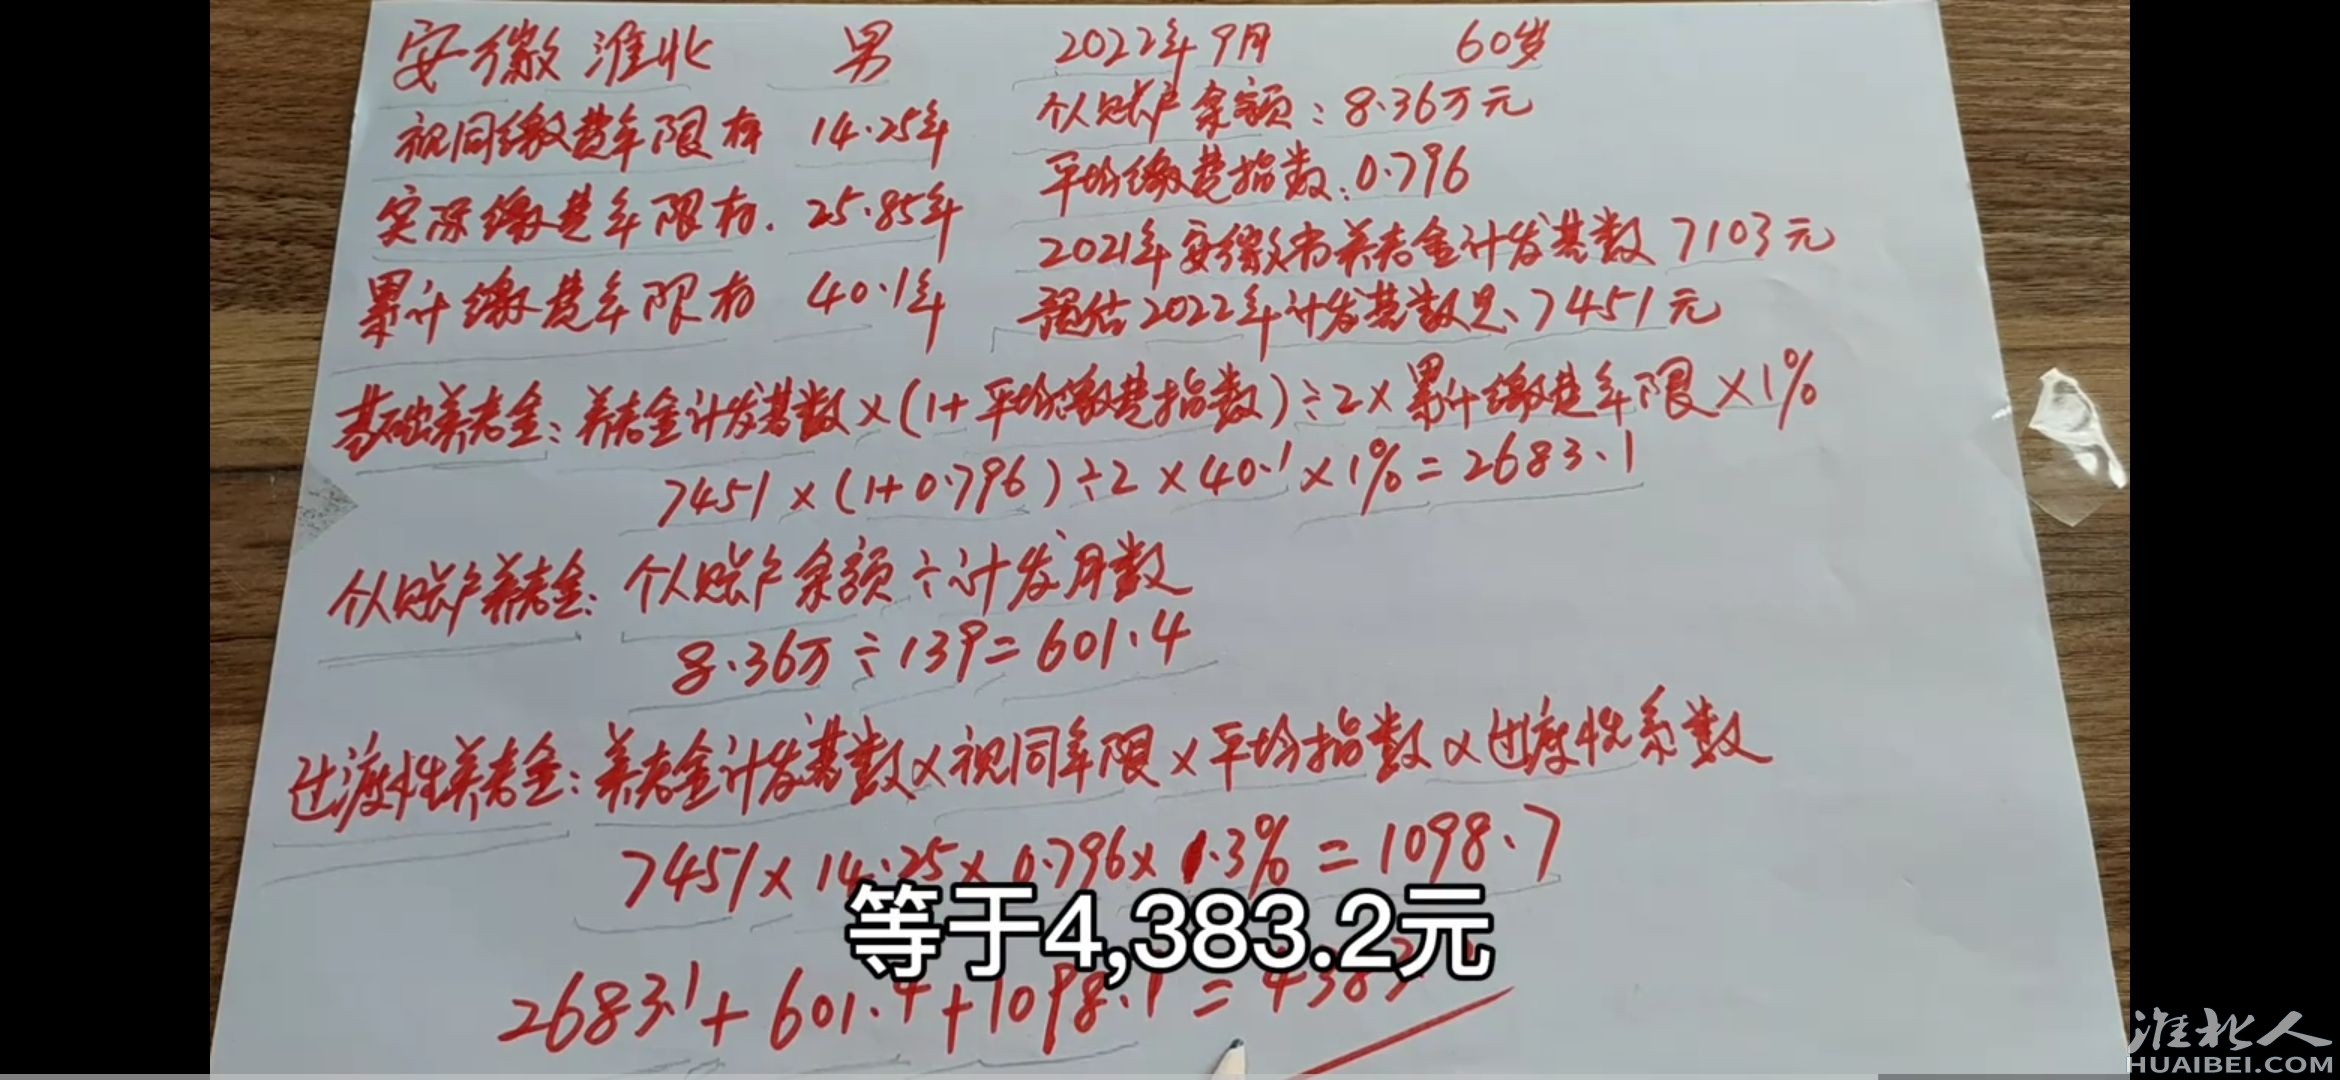 安徽 淮北 男 2022年9月 60岁
视同缴费年限有 14.25年
个人账户余额：8.36万元
平均缴费指数：0.796
实际缴费年限有. 25.85年
2021年安徽省养老金计发基数 7103元
累计缴费年限有 40.1年
预估2022年计发基数是、7451元
基础养老金：养老金计发基数×(1+平均缴费指数)÷2×累计缴费年限×1%
7451×(1+0.796)÷2×40.1×1%=2683.1
个人账户养老金：个人账户余额÷计发月数
8.36万÷139=601.4
过渡性养老金：养老金计发基数×视同年限×平均指数×过渡性系数
7451×14.25×0.796×1.3%=1098.7
等于4,383.2元
2683.1+601.4+1098.7=4383
淮北人
HUAIBEI.COM